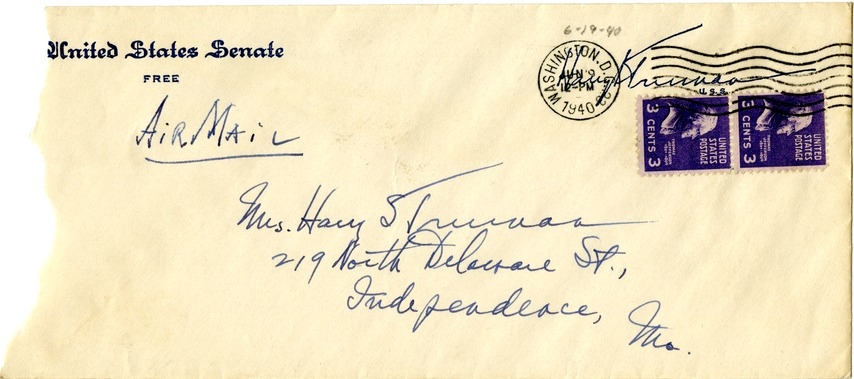 6-19-40
United States Senate
FREE
WASHINGTON, D.C.
JUN
12-PM
1940
Harry S Truman
U.S.S.
AiR MAiL
3 CENTS 3
UNITED
STATES
POSTAGE
3 CENTS 3
UNITED
STATES
POSTAGE
Mrs. Harry S Truman
219 North Delaware St.,
Independence,
Mo.